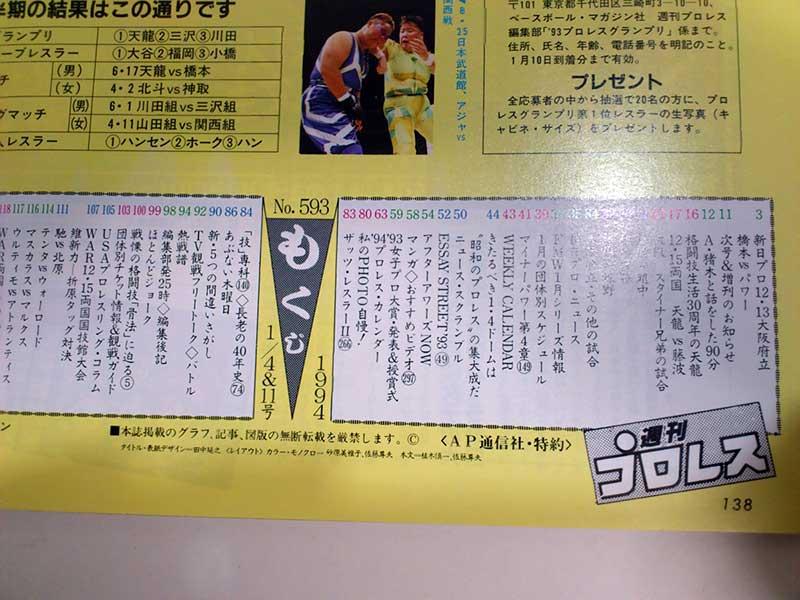 半期の結果はこの通りです
グランプリ
①天龍②三沢③川田
ープレスラー
①大谷②福岡③小橋
(男)
6・17天龍vs橋本
(女)
4・2北斗vs神取
グマッチ
(男)
6・1川田組vs三沢組
(女)
4・11山田組vs関西組
人レスラー
①ハンセン②ホーク③ハン
8・25日本武道館、アジャvs
関西戦
〒101 東京都千代田区三崎町3―10―10、
ベースボール・マガジン社 週刊プロレス
編集部「'93プロレスグランプリ」係まで。
住所、氏名、年齢、電話番号を明記のこと。
1月10日到着分まで有効。
プレゼント
全応募者の中から抽選で20名の方に、プロ
レスグランプリ第1位レスラーの生写真(キ
ャビネ・サイズ)をプレゼントします。
3
新日プロ12・13大阪府立
橋本vsパワー
11
次号&増刊のお知らせ
12
A・猪木と話をした90分
16
格闘技生活30周年の天龍
17
12・15両国 天龍vs藤波
スタイナー兄弟の試合
その他の試合
ニュース
39
FMW1月シリーズ情報
41
1月の団体別スケジュール
43
マイナーパワー第4章(149)
44
WEEKLY CALENDAR
きたるべき1・4ドームは
“昭和のプロレス”の集大成だ
50
ニュース・スクランブル
52
ESSAY STREET'93(49)
54
アフターアワーズNOW
58
マンガ◇おすすめビデオ(297)
59
'93女子プロ大賞・発表&授賞式
63
'94プロレス・カレンダー
80
私のPHOTO自慢!
83
ザッツ・レスラーII(266)
No.593
もくじ
1994
1/4&11号
84
「技」専科(140)◇長老の40年史(74)
86
あぶない木曜日
90
新・5つの間違いさがし
92
TV観戦◇フリートーク◇バトル
94
熱戦譜
98
編集部発25時◇編集後記
99
ほとんどジョーク
100
戦慄の格闘技「骨法」に迫る⑤
103
団体別チケット情報&観戦ガイド
105
USAプロレスリング・コラム
107
WAR12・15両国国技館大会
維新力―折原タッグ対決
111
馳vs北原
114
テンタvsウォーロード
116
マスカラスvsマルタス
117
ウルティモvsアトランティス
118
WAR両国
■本誌掲載のグラフ、記事、図版の無断転載を厳禁します。©〈AP通信社・特約〉
タイトル・表紙デザイン=田中延之 〈レイアウト〉カラー・モノクロ=砂原美雅子、佐藤尊夫 本文=植木慎一、佐藤尊夫
週刊
プロレス
138